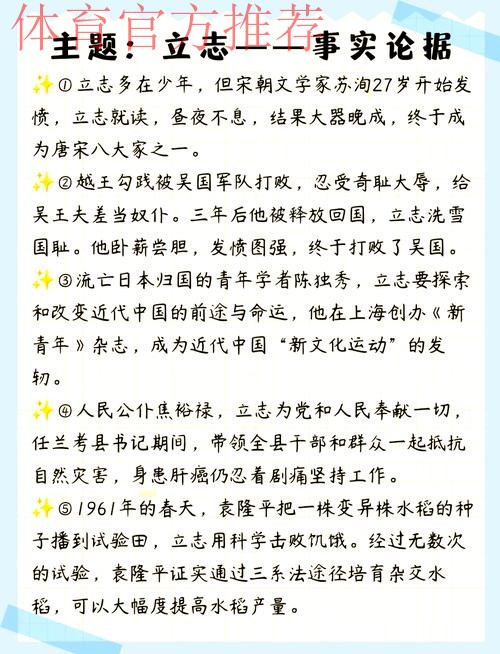 体育官方推荐
主题：立志——事实论据
✨①立志多在少年，但宋朝文学家苏洵27岁开始发
愤，立志就读，昼夜不息，结果大器晚成，终于成
为唐宋八大家之一。
✨②越王勾践被吴国军队打败，忍受奇耻大辱，给
吴王夫差当奴仆。三年后他被释放回国，立志洗雪
国耻。他卧薪尝胆，发愤图强，终于打败了吴国。
✨③流亡日本归国的青年学者陈独秀，立志要探索
和改变近代中国的前途与命运，他在上海创办《新
青年》杂志，成为近代中国“新文化运动”的发
轫。
✨④人民公仆焦裕禄，立志为党和人民奉献一切，
任兰考县书记期间，带领全县干部和群众一起抵抗
自然灾害，身患肝癌仍忍着剧痛坚持工作。
✨⑤1961年的春天，袁隆平把一株变异株水稻的种
子播到试验田，立志用科学击败饥饿。经过无数次
的试验，袁隆平证实通过三系法途径培育杂交水
稻，可以大幅度提高水稻产量。